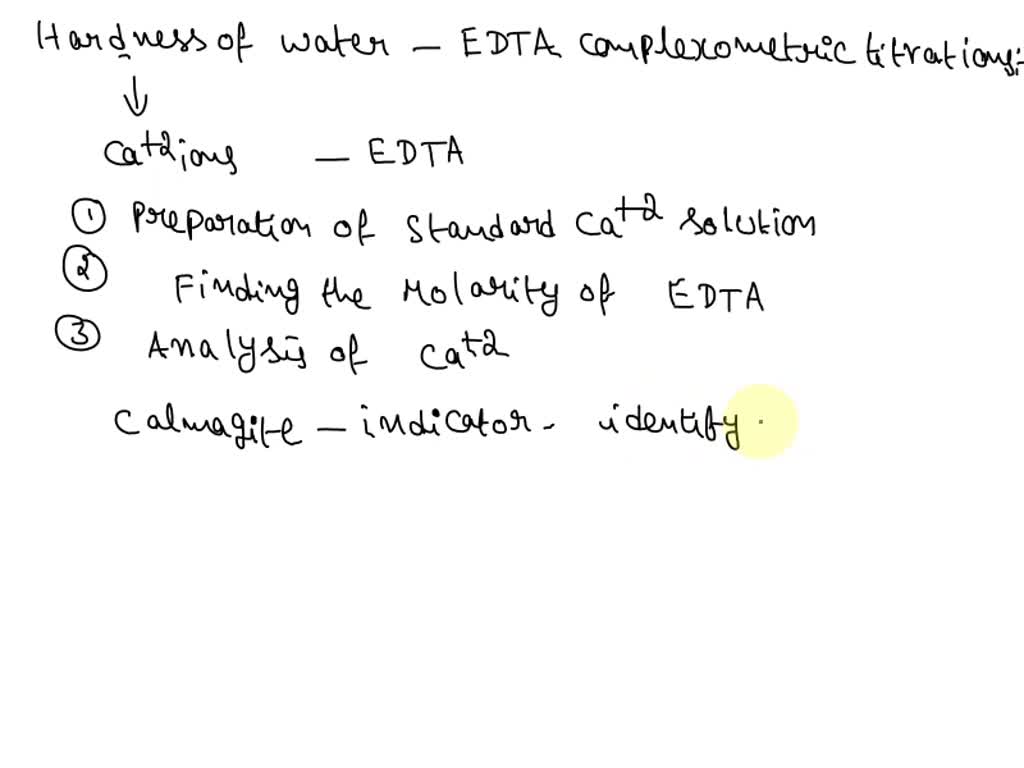 Hardness of water - EDTA complexometric titrations:-
↓
Ca+2 ions - EDTA
① Preparation of Standard Ca+2 solution
② Finding the Molarity of EDTA
③ Analysis of Ca+2
Calmagite - indicator - identify